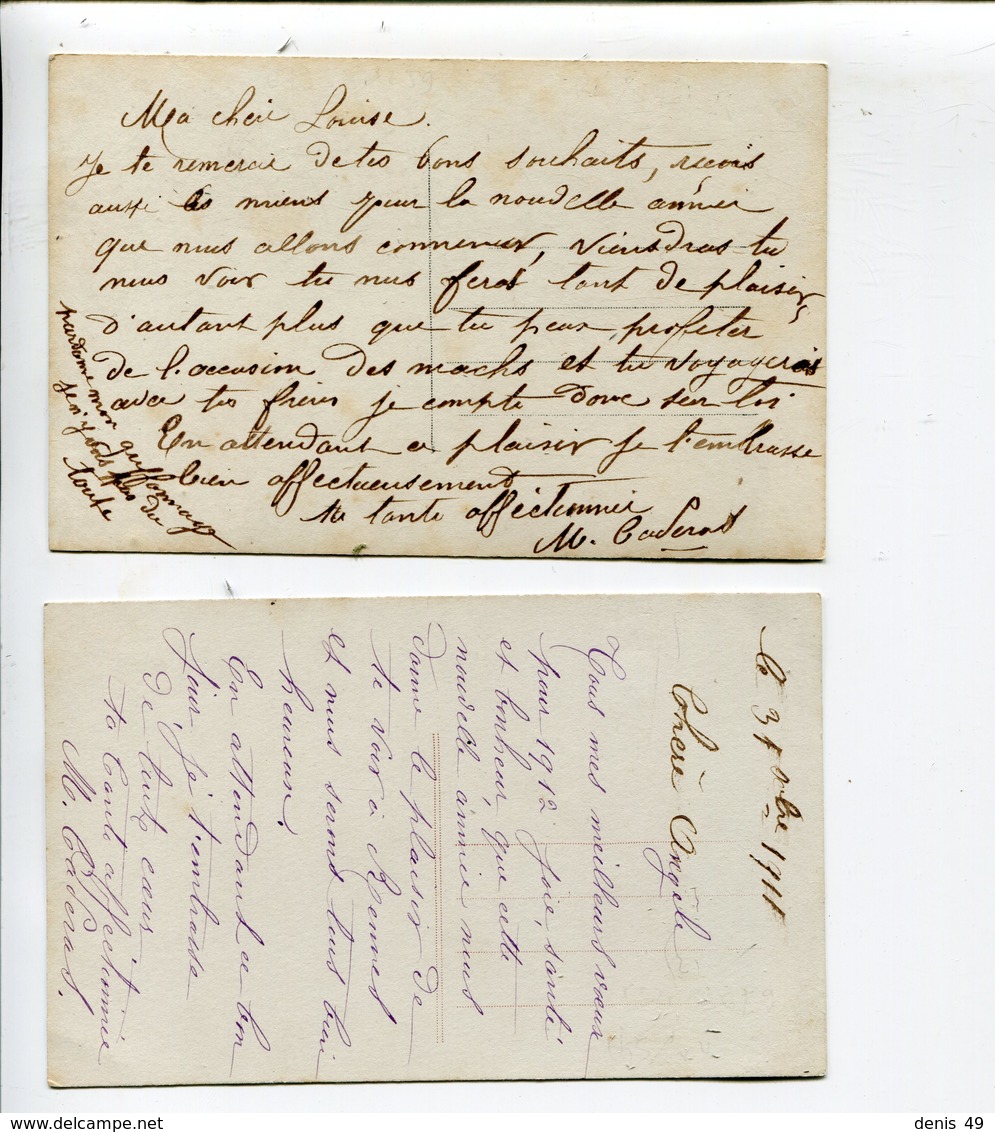 Ma chère Louise.
Je te remercie de tes bons souhaits, reçois
aussi les miens pour la nouvelle année
que nous allons commencer, viendras-tu
nous voir tu nous feras tant de plaisir,
d'autant plus que tu peux profiter
de l'occasion des machs et tu voyagerais
avec tes frères je compte donc sur toi
En attendant ce plaisir je t'embrasse
bien affectueusement
ta tante affectionnée
M. Caderas
pardonne mon
je n'y vois pas du
toute
le 31 Xbre 1911
Chère Angèle
Tous mes meilleurs vœux
pour 1912 Joie, santé
et bonheur, que cette
nouvelle année nous
donne le plaisir de
te voir à Rennes
et nous serons tous bien
heureux.
En attendant ce bon
jour je t'embrasse
de tout cœur
ta tante affectionnée
M. Caderas.
denis 49